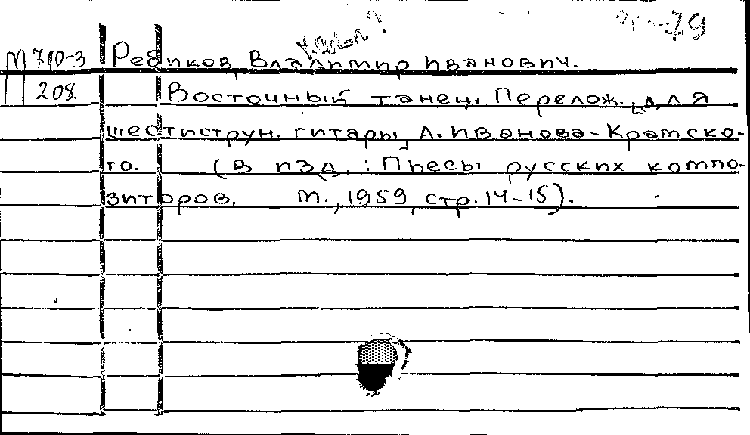 79
М 710-3 Ребиков, Владимир Иванович.
208 Восточный танец. Перелож. для
шестиструн. гитары А. Иванова-Крамско-
го. (В изд.: Пьесы русских компо-
зиторов. М., 1959, стр. 14-15).